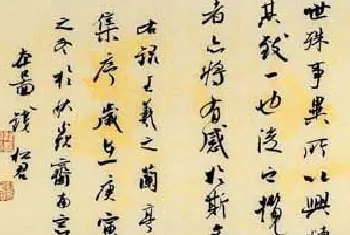 世殊事異所以興懷
其致一也後之攬
者亦將有感於斯文
臨王羲之蘭亭
集序歲在庚寅
之冬於齋南窗
錢松君